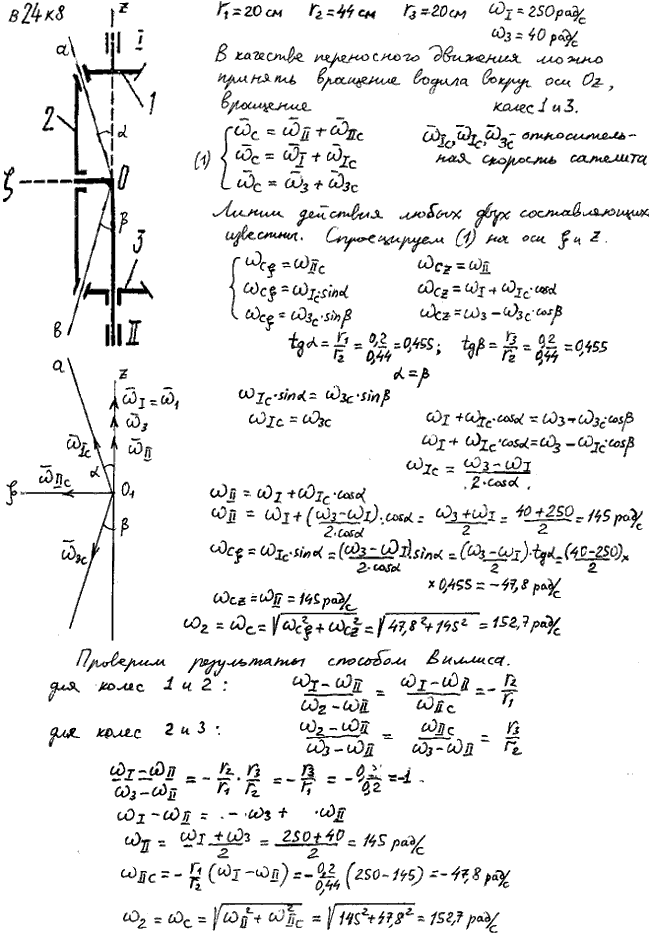 В 24 к 8
r₁=20 см r₂=44 см r₃=20 см ω_I=250 рад/с
ω₃=40 рад/с
В качестве переносного движения можно
принять вращение водила вокруг оси Oz,
вращение колес 1 и 3.
(1) { ω̄_C = ω̄_II + ω̄_IIC ω̄_IC, ω̄_IC, ω̄_3C - относитель-
ω̄_C = ω̄_I + ω̄_IC ная скорость сателита
ω̄_C = ω̄_3 + ω̄_3C
Линии действия любых двух составляющих
известны. Спроецируем (1) на оси ξ и z.
{ ω_Cξ = ω_IIC ω_Cz = ω_II
ω_Cξ = ω_IC·sinα ω_Cz = ω_I + ω_IC·cosα
ω_Cξ = ω_3C·sinβ ω_Cz = ω_3 - ω_3C·cosβ
tgα = r₁/r₂ = 0,2/0,44 = 0,455; tgβ = r₃/r₂ = 0,2/0,44 = 0,455
α = β
ω_IC·sinα = ω_3C·sinβ
ω_IC = ω_3C ω_I + ω_IC·cosα = ω_3 - ω_3C·cosβ
ω_I + ω_IC·cosα = ω_3 - ω_IC·cosβ
ω_IC = (ω_3 - ω_I)/(2·cosα)
ω_II = ω_I + ω_IC·cosα
ω_II = ω_I + (ω_3 - ω_I)/(2cosα)·cosα = (ω_3 + ω_I)/2 = (40+250)/2 = 145 рад/с
ω_Cξ = ω_IC·sinα = (ω_3 - ω_I)/(2cosα)·sinα = (ω_3 - ω_I)/2·tgα = (40-250)/2 ×
× 0,455 = -47,8 рад/с
ω_Cz = ω_II = 145 рад/с
ω_2 = ω_C = √(ω²_Cξ + ω²_Cz) = √(47,8² + 145²) = 152,7 рад/с
Проверим результаты способом Виллиса.
для колес 1 и 2: (ω_I - ω_II)/(ω_2 - ω_II) = (ω_I - ω_II)/ω_IIC = - r₂/r₁
для колес 2 и 3: (ω_2 - ω_II)/(ω_3 - ω_II) = ω_IIC/(ω_3 - ω_II) = r₃/r₂
(ω_I - ω_II)/(ω_3 - ω_II) = - r₂/r₁ · r₃/r₂ = - r₃/r₁ = - 0,2/0,2 = -1.
ω_I - ω_II = - ω_3 + ω_II
ω_II = (ω_I + ω_3)/2 = (250+40)/2 = 145 рад/с
ω_IIC = - r₁/r₂ (ω_I - ω_II) = - 0,2/0,44 (250 - 145) = -47,8 рад/с
ω_2 = ω_C = √(ω_II² + ω²_IIC) = √(145² + 47,8²) = 152,7 рад/с
z
a
I
1
2
α
ξ
O
β
3
в
II
a
z
ω̄_I = ω̄_1
ω̄_3
ω̄_IC
ω̄_II
α
ω̄_IIC
ξ
O₁
β
ω̄_3C